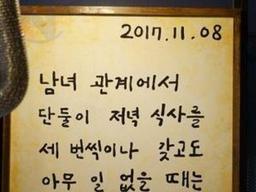 2017.11.08
남녀 관계에서
단둘이 저녁 식사를
세 번씩이나 갖고도
아무 일 없을 때는